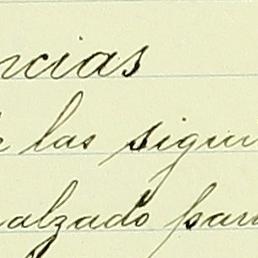 ncias
las sigui
alzado par